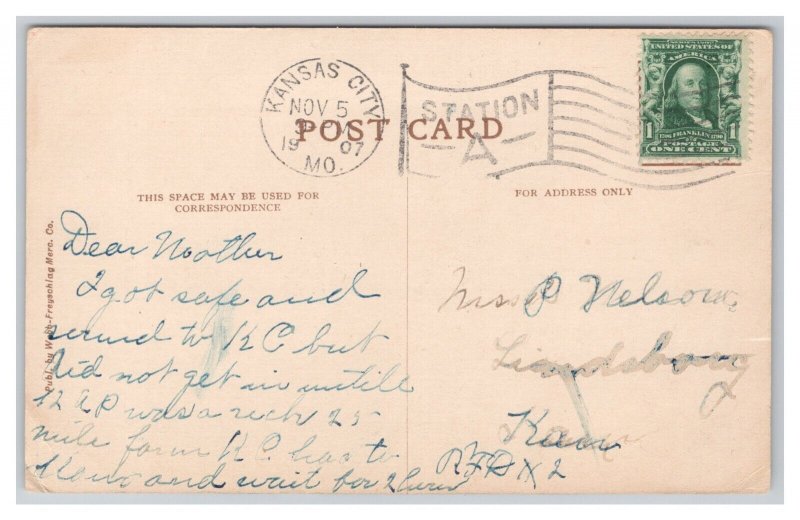 KANSAS CITY
NOV 5
PM
1907
MO.
STATION
A
UNITED STATES OF
AMERICA
1706 FRANKLIN 1790
1 POSTAGE 1
ONE CENT
POST CARD
THIS SPACE MAY BE USED FOR
CORRESPONDENCE
FOR ADDRESS ONLY
Publ. by Webb-Freyschlag Merc. Co.
Dear Moother
I got safe and
sound to K C but
did not get in untill
12 was a reck 25
mile form K C has to
and wait for 2
Mrs P Nelson
Lindsborg
Kan
RFD X 2